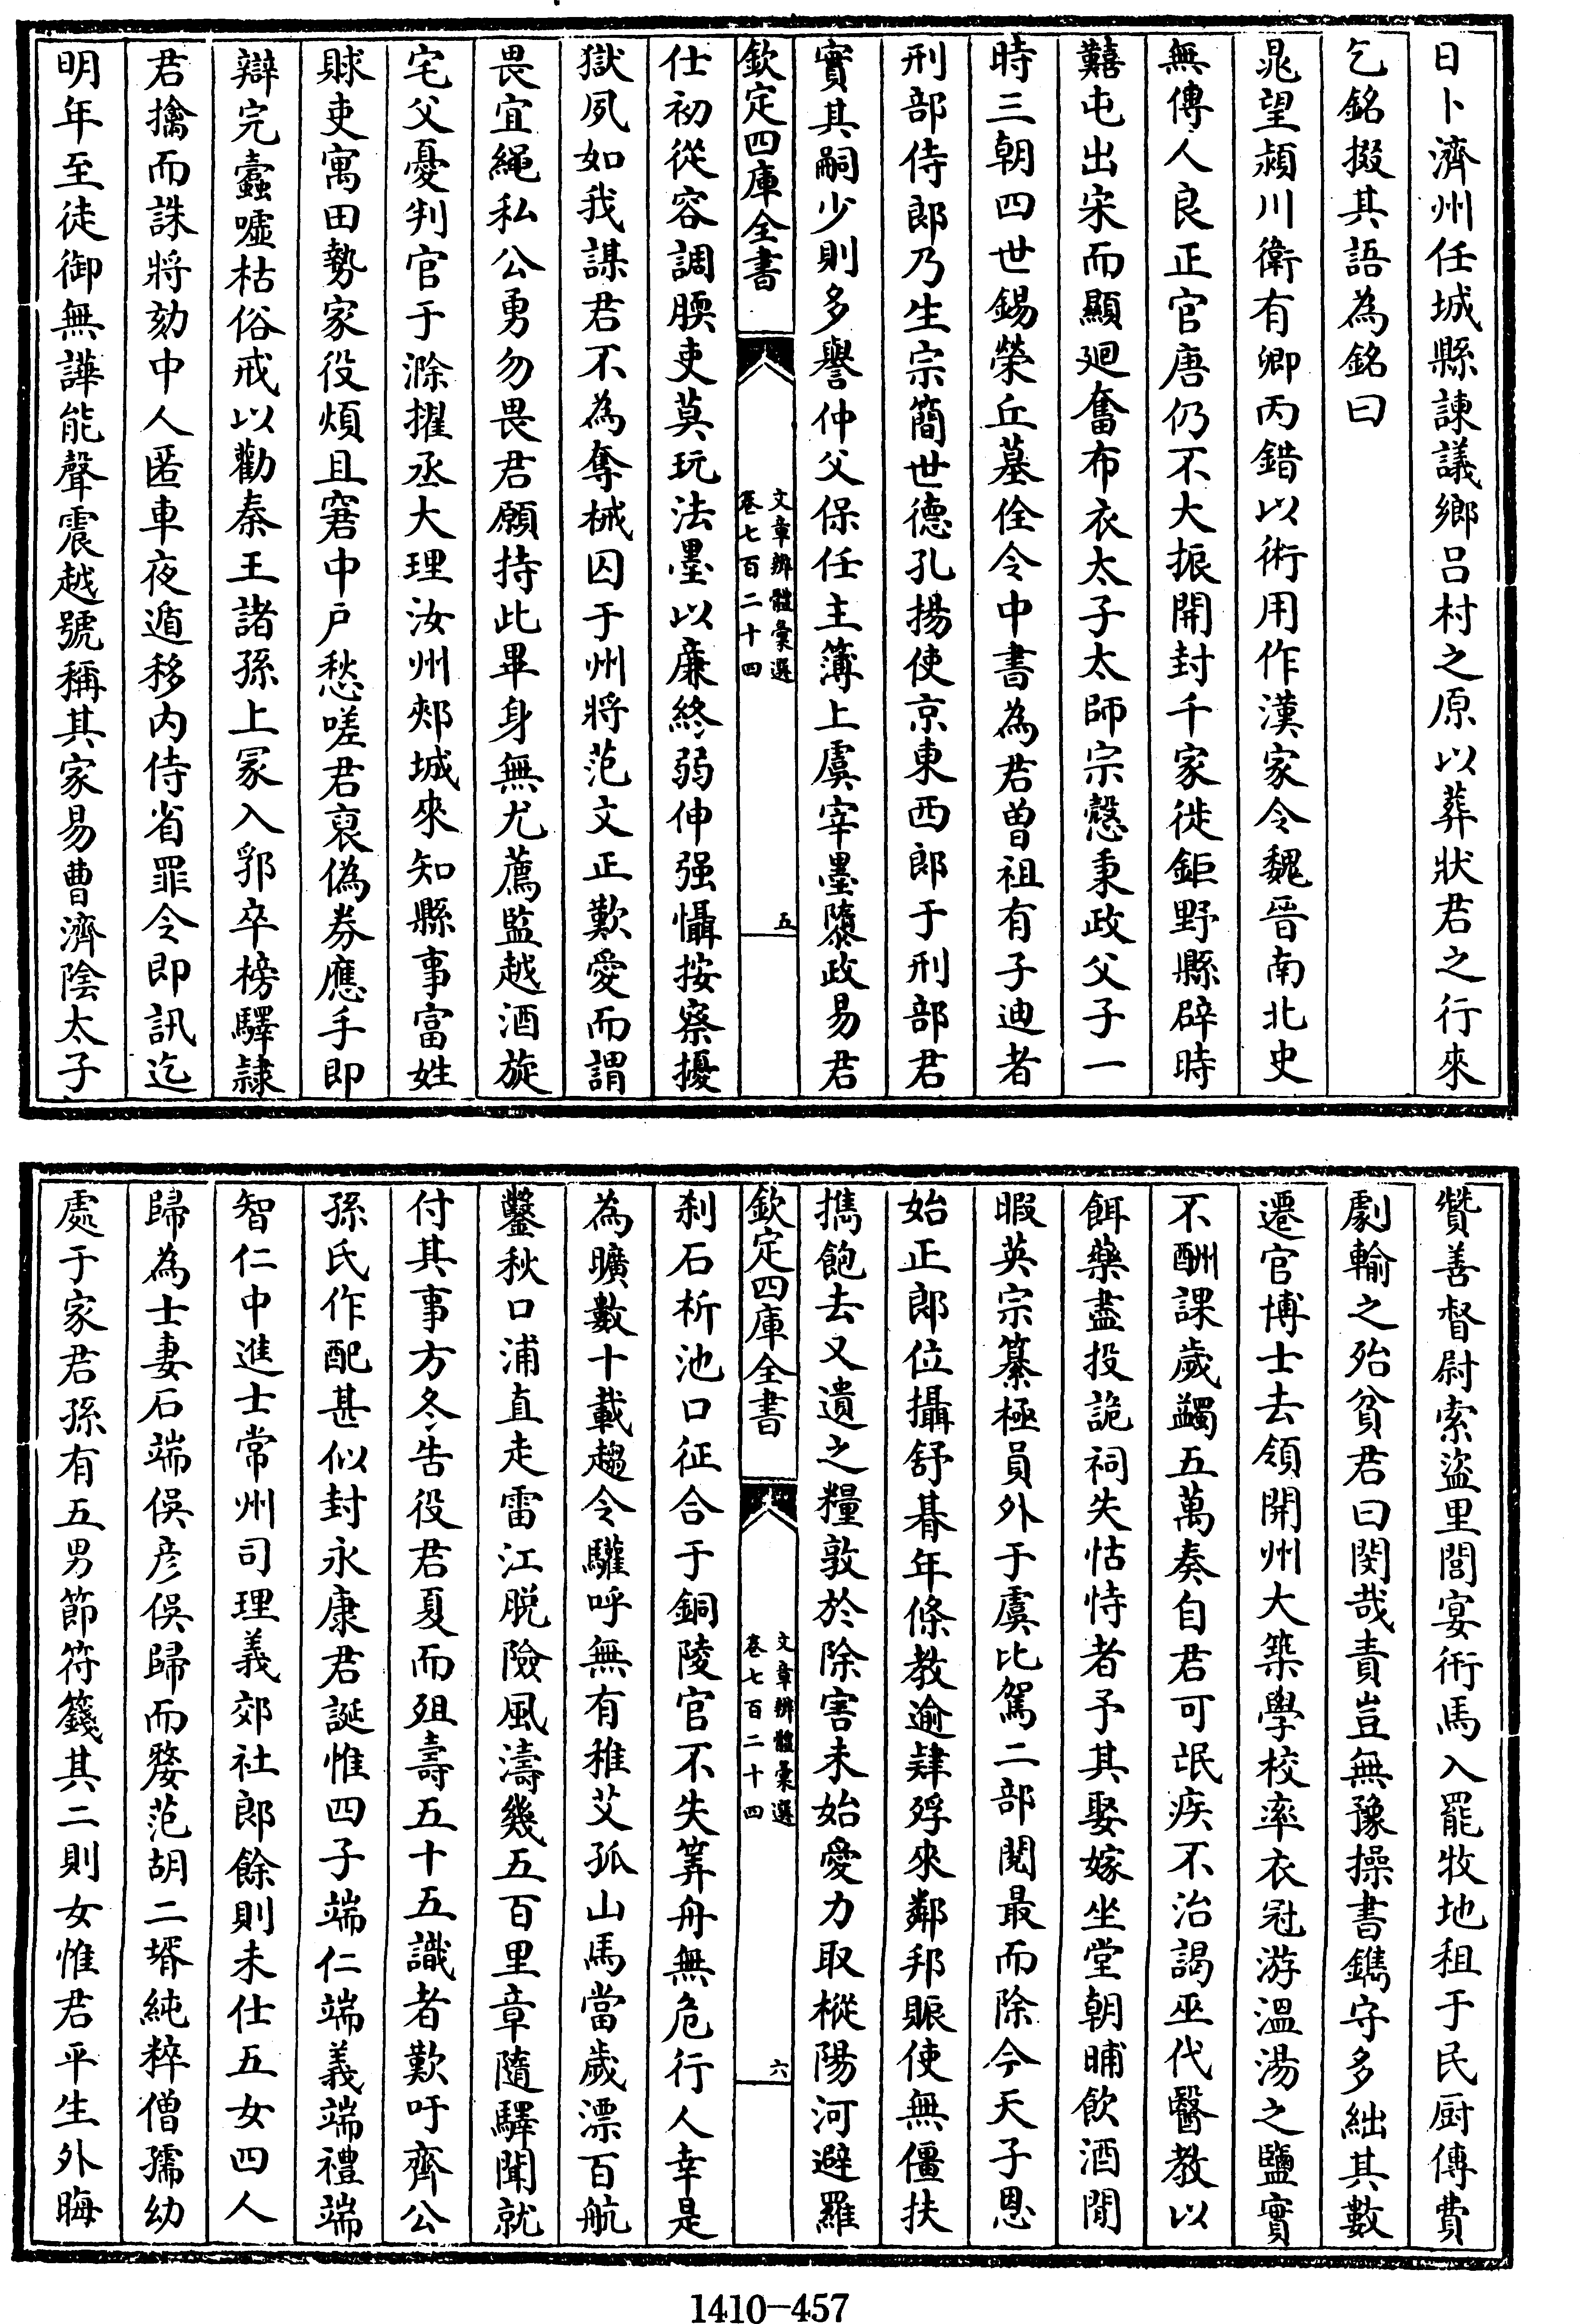 日卜濟州任城縣諫議鄉呂村之原以葬狀君之行來
乞銘掇其語為銘曰
晁望潁川衛有卿丙錯以術用作漢家令魏晉南北史
無傳人良正官唐仍不大振開封千家徙鉅野縣辟時
囏屯出宋而顯廻奮布衣太子太師宗慤秉政父子一
時三朝四世錫榮丘墓佺令中書為君曾祖有子迪者
刑部侍郎乃生宗簡世德孔揚使京東西郎于刑部君
實其嗣少則多譽仲父保任主簿上虞宰墨隳政易君
欽定四庫全書
文章辨體彙選
卷七百二十四
五
仕初從容調腰吏莫玩法墨以廉終弱伸强懾按察擾
獄夙如我謀君不為奪械囚于州將范文正歎愛而謂
畏宜繩私公勇勿畏君願持此畢身無尤薦監越酒旋
宅父憂判官于滁擢丞大理汝州郟城來知縣事富姓
賕吏寓田勢家役煩且窘中戶愁嗟君裒偽券應手即
辯完蠹噓枯俗戒以勸秦王諸孫上冢入郛卒榜驛隷
君擒而誅將劾中人匿車夜遁移内侍省罪令即訊迄
明年至徒御無譁能聲震越號稱其家易曹濟隂太子
贊善督尉索盗里閭宴衎馬入罷牧地租于民厨傳費
劇輸之殆貧君曰閔哉責豈無豫操書鐫守多絀其數
遷官博士去領開州大築學校率衣冠游溫湯之鹽實
不酬課歲蠲五萬奏自君可氓疾不治謁巫代醫教以
餌藥盡投詭祠失怙恃者予其娶嫁坐堂朝晡飲酒閒
暇英宗纂極員外于虞比駕二部閱最而除今天子恩
始正郎位攝舒朞年條教逾肄殍來鄰邦賑使無僵扶
攜飽去又遺之糧敦於除害未始愛力取樅陽河避羅
欽定四庫全書
文章辨體彙選
卷七百二十四
六
刹石析池口征合于銅陵官不失筭舟無危行人幸是
為曠數十載趨令驩呼無有稚艾孤山馬當歲漂百航
鑿秋口浦直走雷江脱險風濤幾五百里章隨驛聞就
付其事方冬告役君夏而殂壽五十五識者歎吁齊公
孫氏作配甚似封永康君誕惟四子端仁端義端禮端
智仁中進士常州司理義郊社郎餘則未仕五女四人
歸為士妻石端俁彥俁歸而嫠范胡二壻純粹僧孺幼
處于家君孫有五男節符籛其二則女惟君平生外晦
1410-457